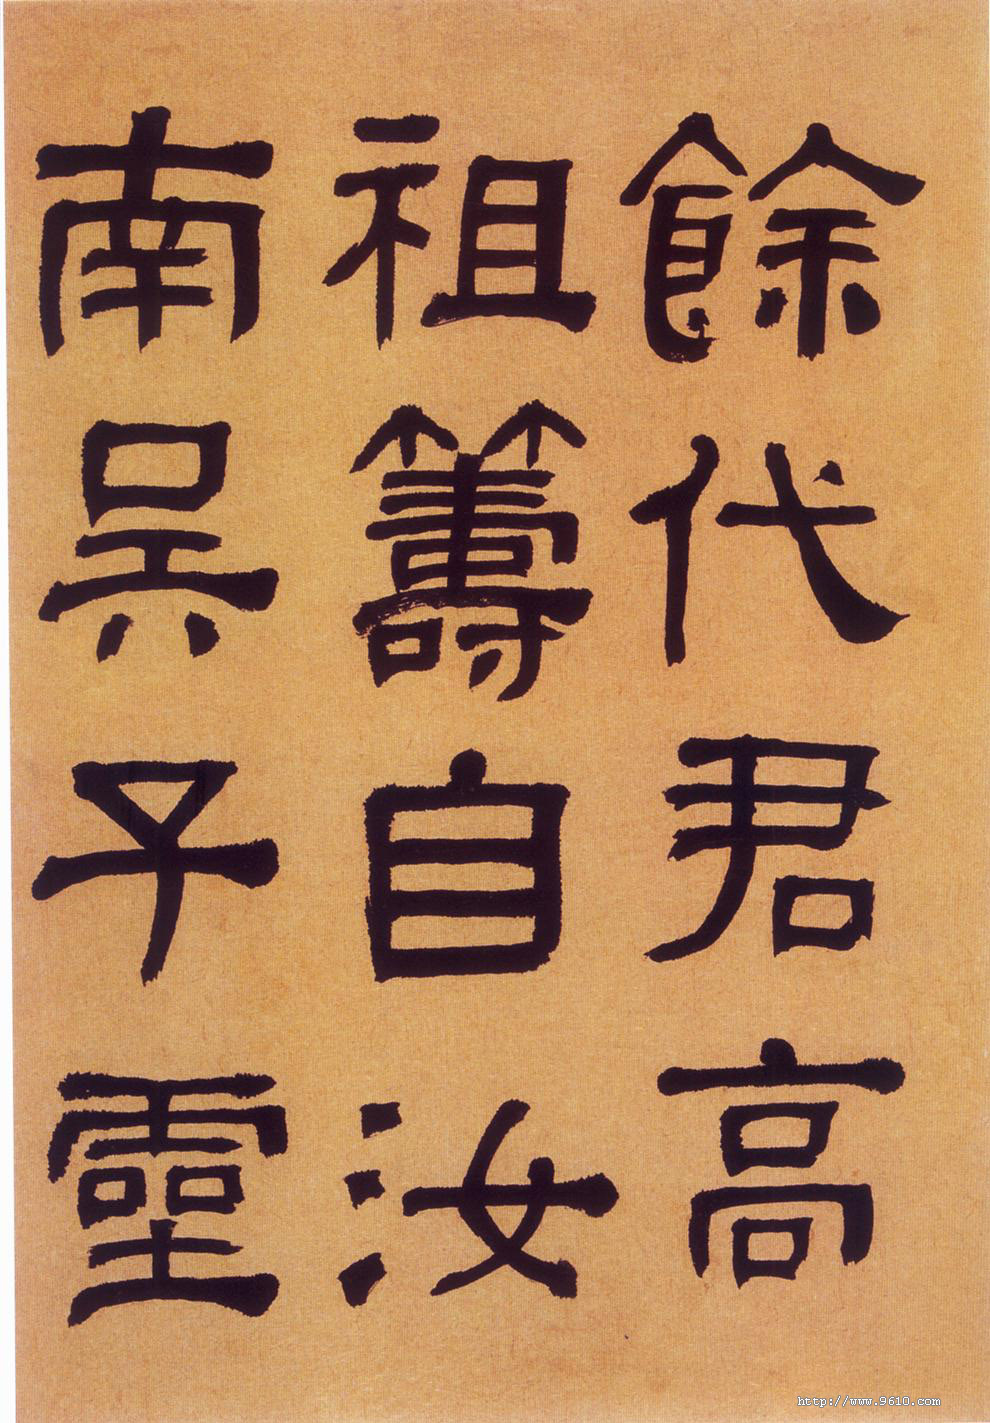 餘代君高
祖籌自汝
南吳子靈
http://www.9610.com